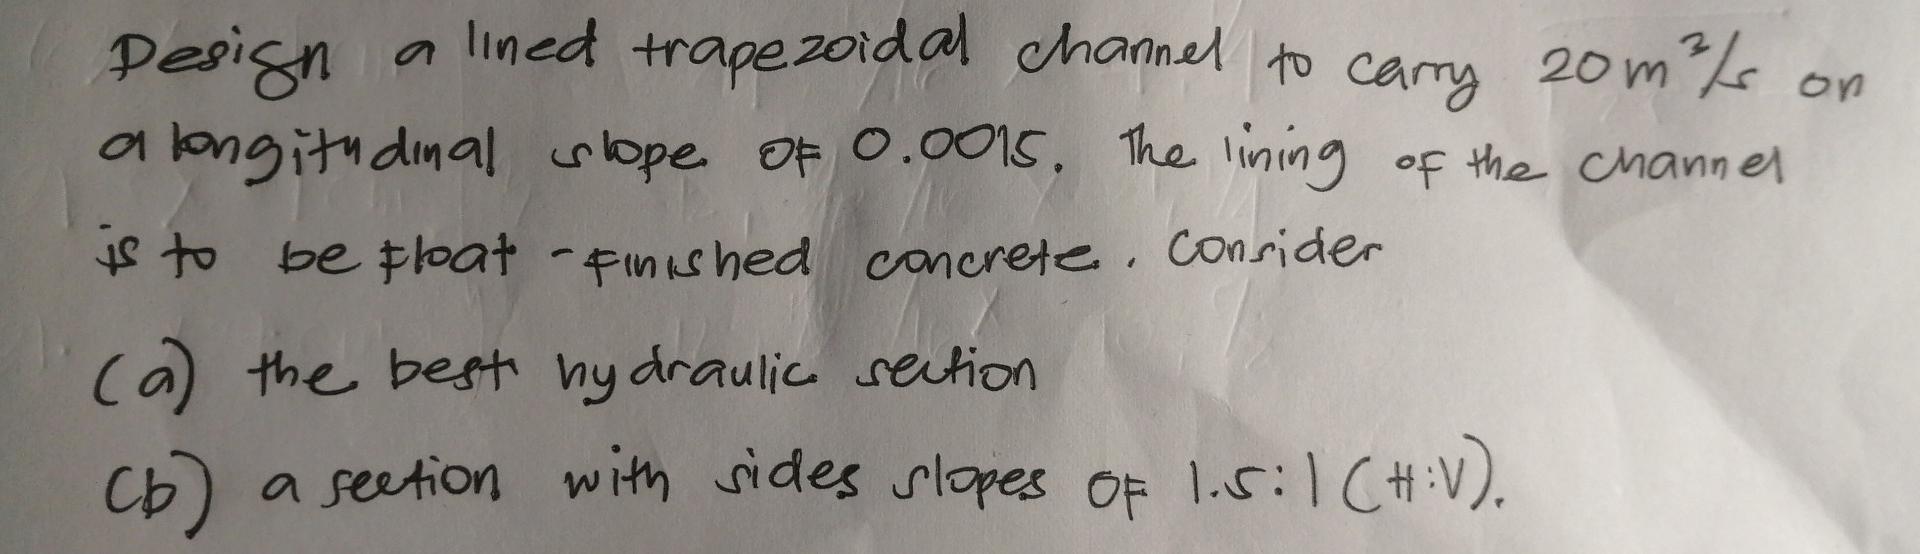 Design a lined trapezoidal channel to carry 20 m³/s on
a longitudinal slope of 0.0015. The lining of the channel
is to be float-finished concrete. Consider
(a) the best hydraulic section
(b) a section with sides slopes of 1.5:1 (H:V).